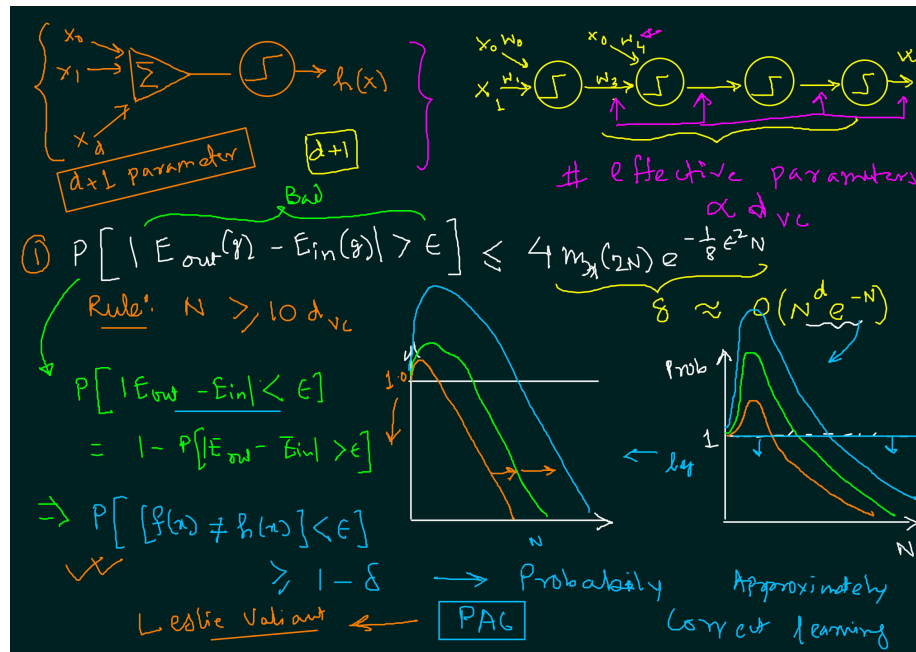 x₀
x₁
x_d
Σ
h(x)
d+1 parameter
d+1
x₀ w₀
x₁ w₁
w₃
x₀ w₄
# effective parameters
∝ d_VC
Bad
① P[|E_out(g) - E_in(g)| > ϵ] ≤ 4 m_H(2N) e^{-1/8 ϵ² N}
Rule: N ≥ 10 d_VC
δ ≈ O(N^d e^{-N})
P[|E_out - E_in| < ϵ]
= 1 - P[|E_out - E_in| > ϵ]
⇒ P[[f(x) ≠ h(x)] < ϵ]
≥ 1 - δ → Probability Approximately
Correct learning
Leslie Valiant ← PAC
1.0
N
← log
Prob
1
N